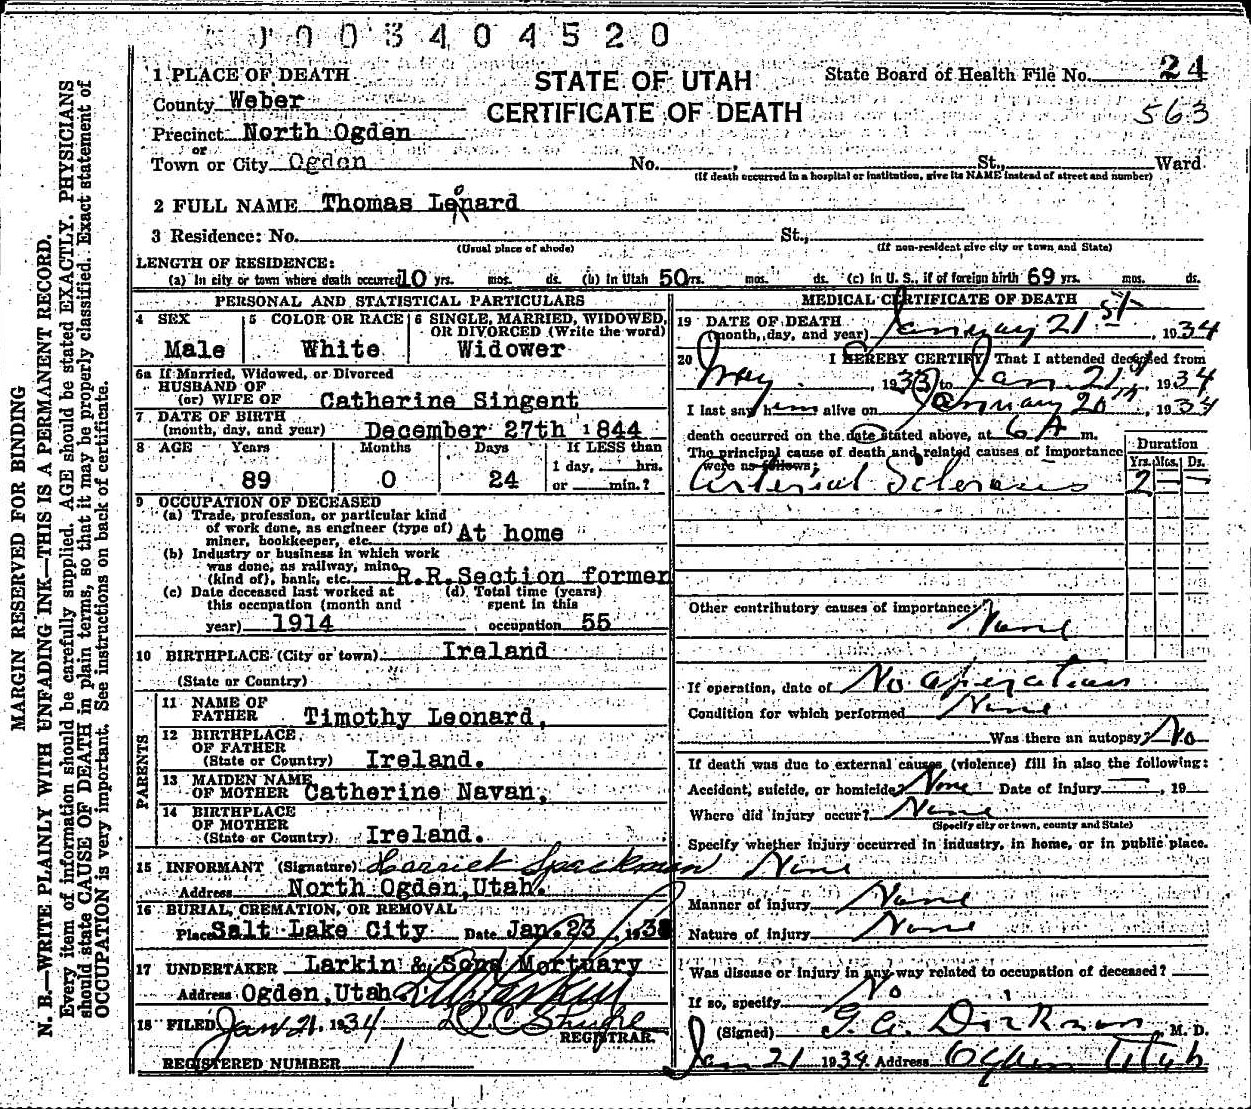 003404520
1 PLACE OF DEATH
STATE OF UTAH
CERTIFICATE OF DEATH
State Board of Health File No. 24
563
County Weber
Precinct North Ogden
or
Town or City Ogden No. , St., Ward
(If death occurred in a hospital or institution, give its NAME instead of street and number)
2 FULL NAME Thomas Leonard
3 Residence: No. St.,
(Usual place of abode) (If non-resident give city or town and State)
LENGTH OF RESIDENCE:
(a) In city or town where death occurred 10 yrs. mos. ds. (b) In Utah 50 yrs. mos. ds. (c) In U. S., if of foreign birth 69 yrs. mos. ds.
PERSONAL AND STATISTICAL PARTICULARS
4 SEX 5 COLOR OR RACE 6 SINGLE, MARRIED, WIDOWED, OR DIVORCED (Write the word)
Male White Widower
6a If Married, Widowed, or Divorced
HUSBAND OF
(or) WIFE OF Catherine Singent
7 DATE OF BIRTH
(month, day, and year) December 27th 1844
8 AGE Years Months Days If LESS than
1 day, hrs.
89 0 24 or min.?
9 OCCUPATION OF DECEASED
(a) Trade, profession, or particular kind
of work done, as engineer (type of)
miner, bookkeeper, etc. At home
(b) Industry or business in which work
was done, as railway, mine
(kind of), bank, etc. R.R.Section former
(c) Date deceased last worked at (d) Total time (years)
this occupation (month and spent in this
year) 1914 occupation 55
10 BIRTHPLACE (City or town) Ireland
(State or Country)
PARENTS
11 NAME OF
FATHER Timothy Leonard,
12 BIRTHPLACE
OF FATHER
(State or Country) Ireland.
13 MAIDEN NAME
OF MOTHER Catherine Navan,
14 BIRTHPLACE
OF MOTHER
(State or Country) Ireland.
15 INFORMANT (Signature) Harriet Spackman
Address North Ogden,Utah.
16 BURIAL, CREMATION, OR REMOVAL
Place Salt Lake City Date Jan. 23, 193
17 UNDERTAKER Larkin & Sons Mortuary
Address Ogden,Utah.
18 FILED Jan 21, 1934
REGISTRAR.
REGISTERED NUMBER 1
MEDICAL CERTIFICATE OF DEATH
19 DATE OF DEATH
(month, day, and year) January 21st, 1934
20 I HEREBY CERTIFY, That I attended deceased from
May, 1933 to Jan. 21st, 1934
I last saw him alive on January 20th, 1934
death occurred on the date stated above, at 6 A m.
The principal cause of death and related causes of importance
were as follows:
Duration
Yrs. Mos. Ds.
Arterial Sclerosis 2 — —
Other contributory causes of importance: None
If operation, date of No operation
Condition for which performed None
Was there an autopsy? No
If death was due to external causes (violence) fill in also the following:
Accident, suicide, or homicide? None Date of injury — , 19
Where did injury occur? None
(Specify city or town, county and State)
Specify whether injury occurred in industry, in home, or in public place.
None
Manner of injury None
Nature of injury None
Was disease or injury in any way related to occupation of deceased?
If so, specify No
(Signed) G. A. Dickson, M. D.
Jan 21 1934 Address Ogden Utah
MARGIN RESERVED FOR BINDING
N. B.—WRITE PLAINLY WITH UNFADING INK—THIS IS A PERMANENT RECORD.
Every item of information should be carefully supplied. AGE should be stated EXACTLY. PHYSICIANS
should state CAUSE OF DEATH in plain terms, so that it may be properly classified. Exact statement of
OCCUPATION is very important. See instructions on back of certificate.